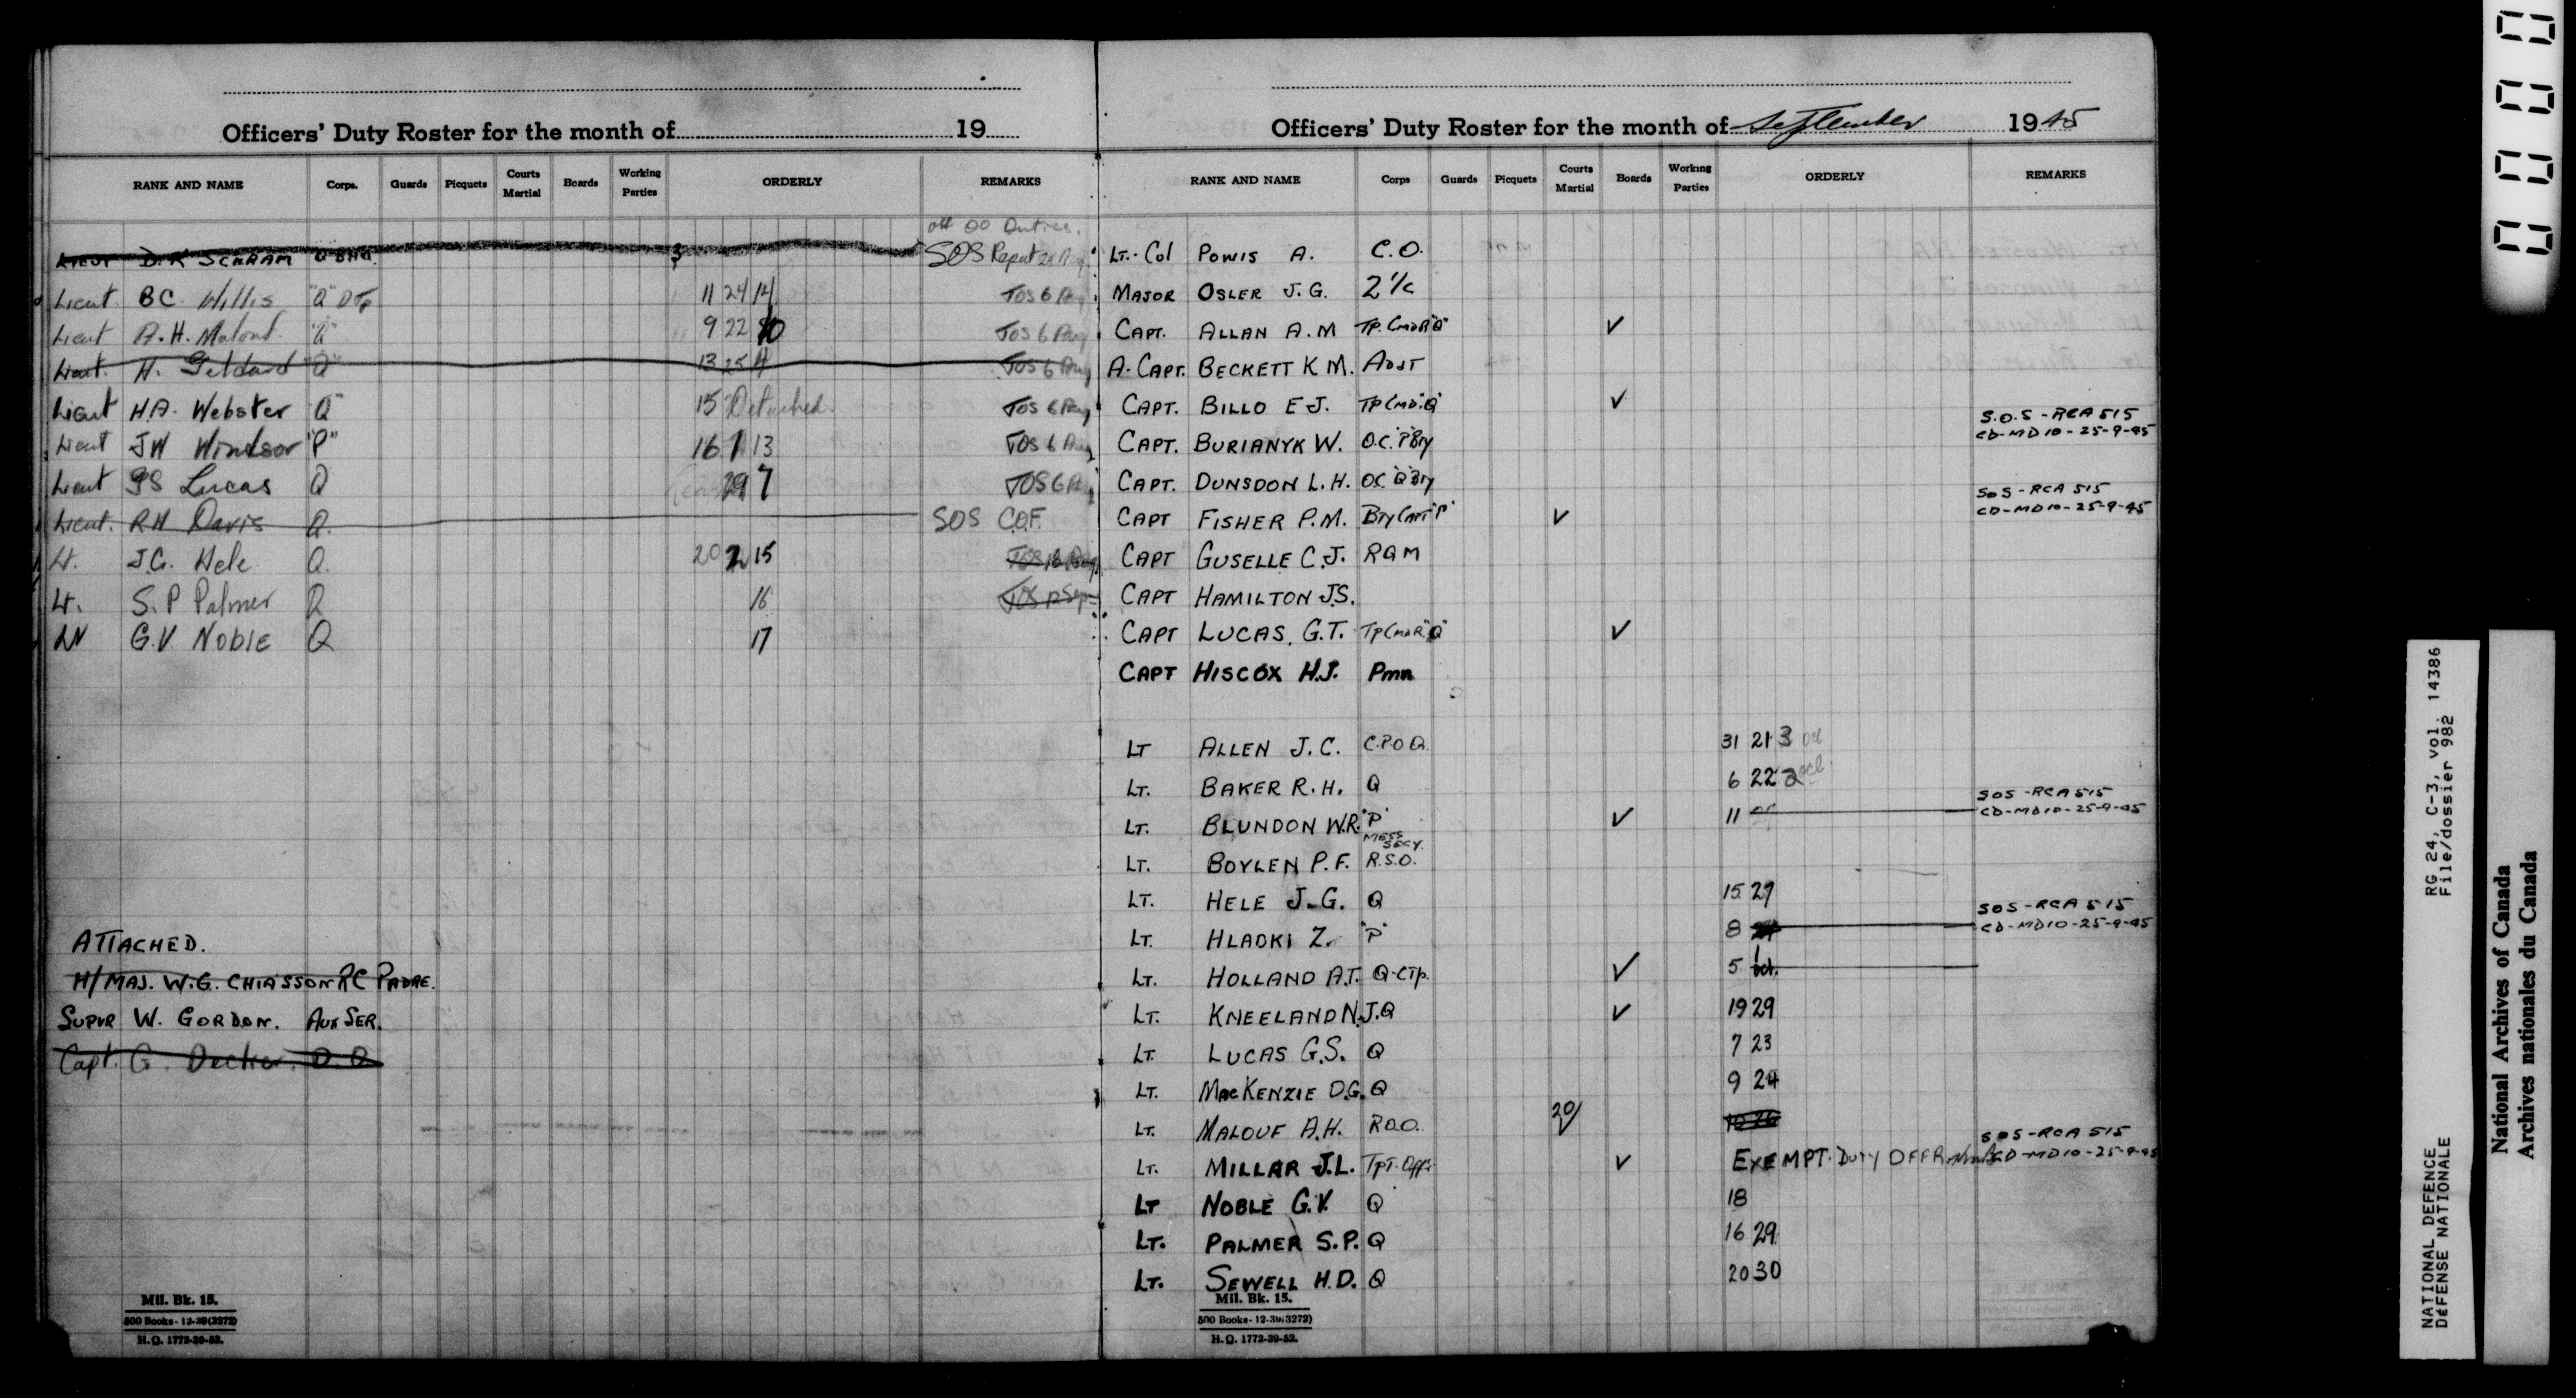 Officers' Duty Roster for the month of 19
RANK AND NAME Corps. Guards Picquets Courts Martial Boards Working Parties ORDERLY REMARKS
off OO Duties.
Lieut D. K SCHRAM Q BHQ. 3 SOS Reput 24 Aug.
Lieut. BC. Willis "Q" D Tp 11 24 14 TOS 6 Aug
Lieut A. H. Malouf. "Q" 9 22 10 TOS 6 Aug
Lieut. H. Geldard "Q" 13 25 4 TOS 6 Aug
Lieut H.A. Webster "Q" 15 Detached. TOS 6 Aug
Lieut JW Windsor "P" 16 1 13 TOS 6 Aug
Lieut GS Lucas Q 29 7 TOS 6 Aug
Lieut. RH Davis Q. SOS C.O.F.
Lt. J.G. Hele Q. 20 2 15 TOS 18 Aug.
Lt. S. P Palmer Q 16 TOS 12 Sep
Lt G.V. Noble Q 17
ATTACHED.
H/MAJ. W.G. CHIASSON RC PADRE.
SUPVR W. GORDON. AUX SER.
Capt. G. Decker. D. O
Mil. Bk. 15.
500 Books-12-39(3272)
H.Q. 1772-39-52.
Officers' Duty Roster for the month of September 1945
RANK AND NAME Corps Guards Picquets Courts Martial Boards Working Parties ORDERLY REMARKS
LT.-Col POWIS A. C.O.
MAJOR OSLER J.G. 2 I/c
CAPT. ALLAN A.M TP. CMDR "Q" ✓
A-CAPT. BECKETT K M. ADJT
CAPT. BILLO E J. TP CMD. "Q" ✓
CAPT. BURIANYK W. O.C. "P" Bty S.O.S - RCA 515 CD-MD10-25-9-45
CAPT. DUNSDON L.H. OC. "Q" Bty
CAPT FISHER P.M. BTY CAPT "P" ✓ SOS-RCA 515 CD-MD10-25-9-45
CAPT GUSELLE C.J. RQM
CAPT HAMILTON J.S.
CAPT LUCAS, G.T. TP CMDR. "Q" ✓
CAPT HISCOX H.J. Pmr
LT ALLEN J.C. C.P.O Q. 31 21 3 Oct
LT. BAKER R.H. Q 6 22 2 Oct
LT. BLUNDON W.R. "P" ✓ 11 SOS-RCA 515 CD-MD10-25-9-45
MESS SECY.
LT. BOYLEN P.F. R.S.O.
LT. HELE J.G. Q 15 27
LT. HLADKI Z. "P" 8 SOS-RCA 515 CD-MD10-25-9-45
LT. HOLLAND A.J. Q-C Tp. ✓ 5 1 Oct.
LT. KNEELAND N.J. Q ✓ 19 29
LT. LUCAS G.S. Q 7 23
LT. MACKENZIE D.G. Q 9 24
LT. MALOUF A.H. R.O.O. 20 ✓ 10 26
LT. MILLAR J.L. TPT. Offr ✓ EXEMPT. DUTY OFFR SOS-RCA 515 CD-MD10-25-9-45
LT NOBLE G.V. Q 18
LT. PALMER S.P. Q 16 29
LT. SEWELL H.D. Q 20 30
Mil. Bk. 15.
500 Books-12-39(3272)
H.Q. 1772-39-52.
NATIONAL DEFENCE RG 24, C-3, vol. 14386
DÉFENSE NATIONALE File/dossier 982
National Archives of Canada
Archives nationales du Canada